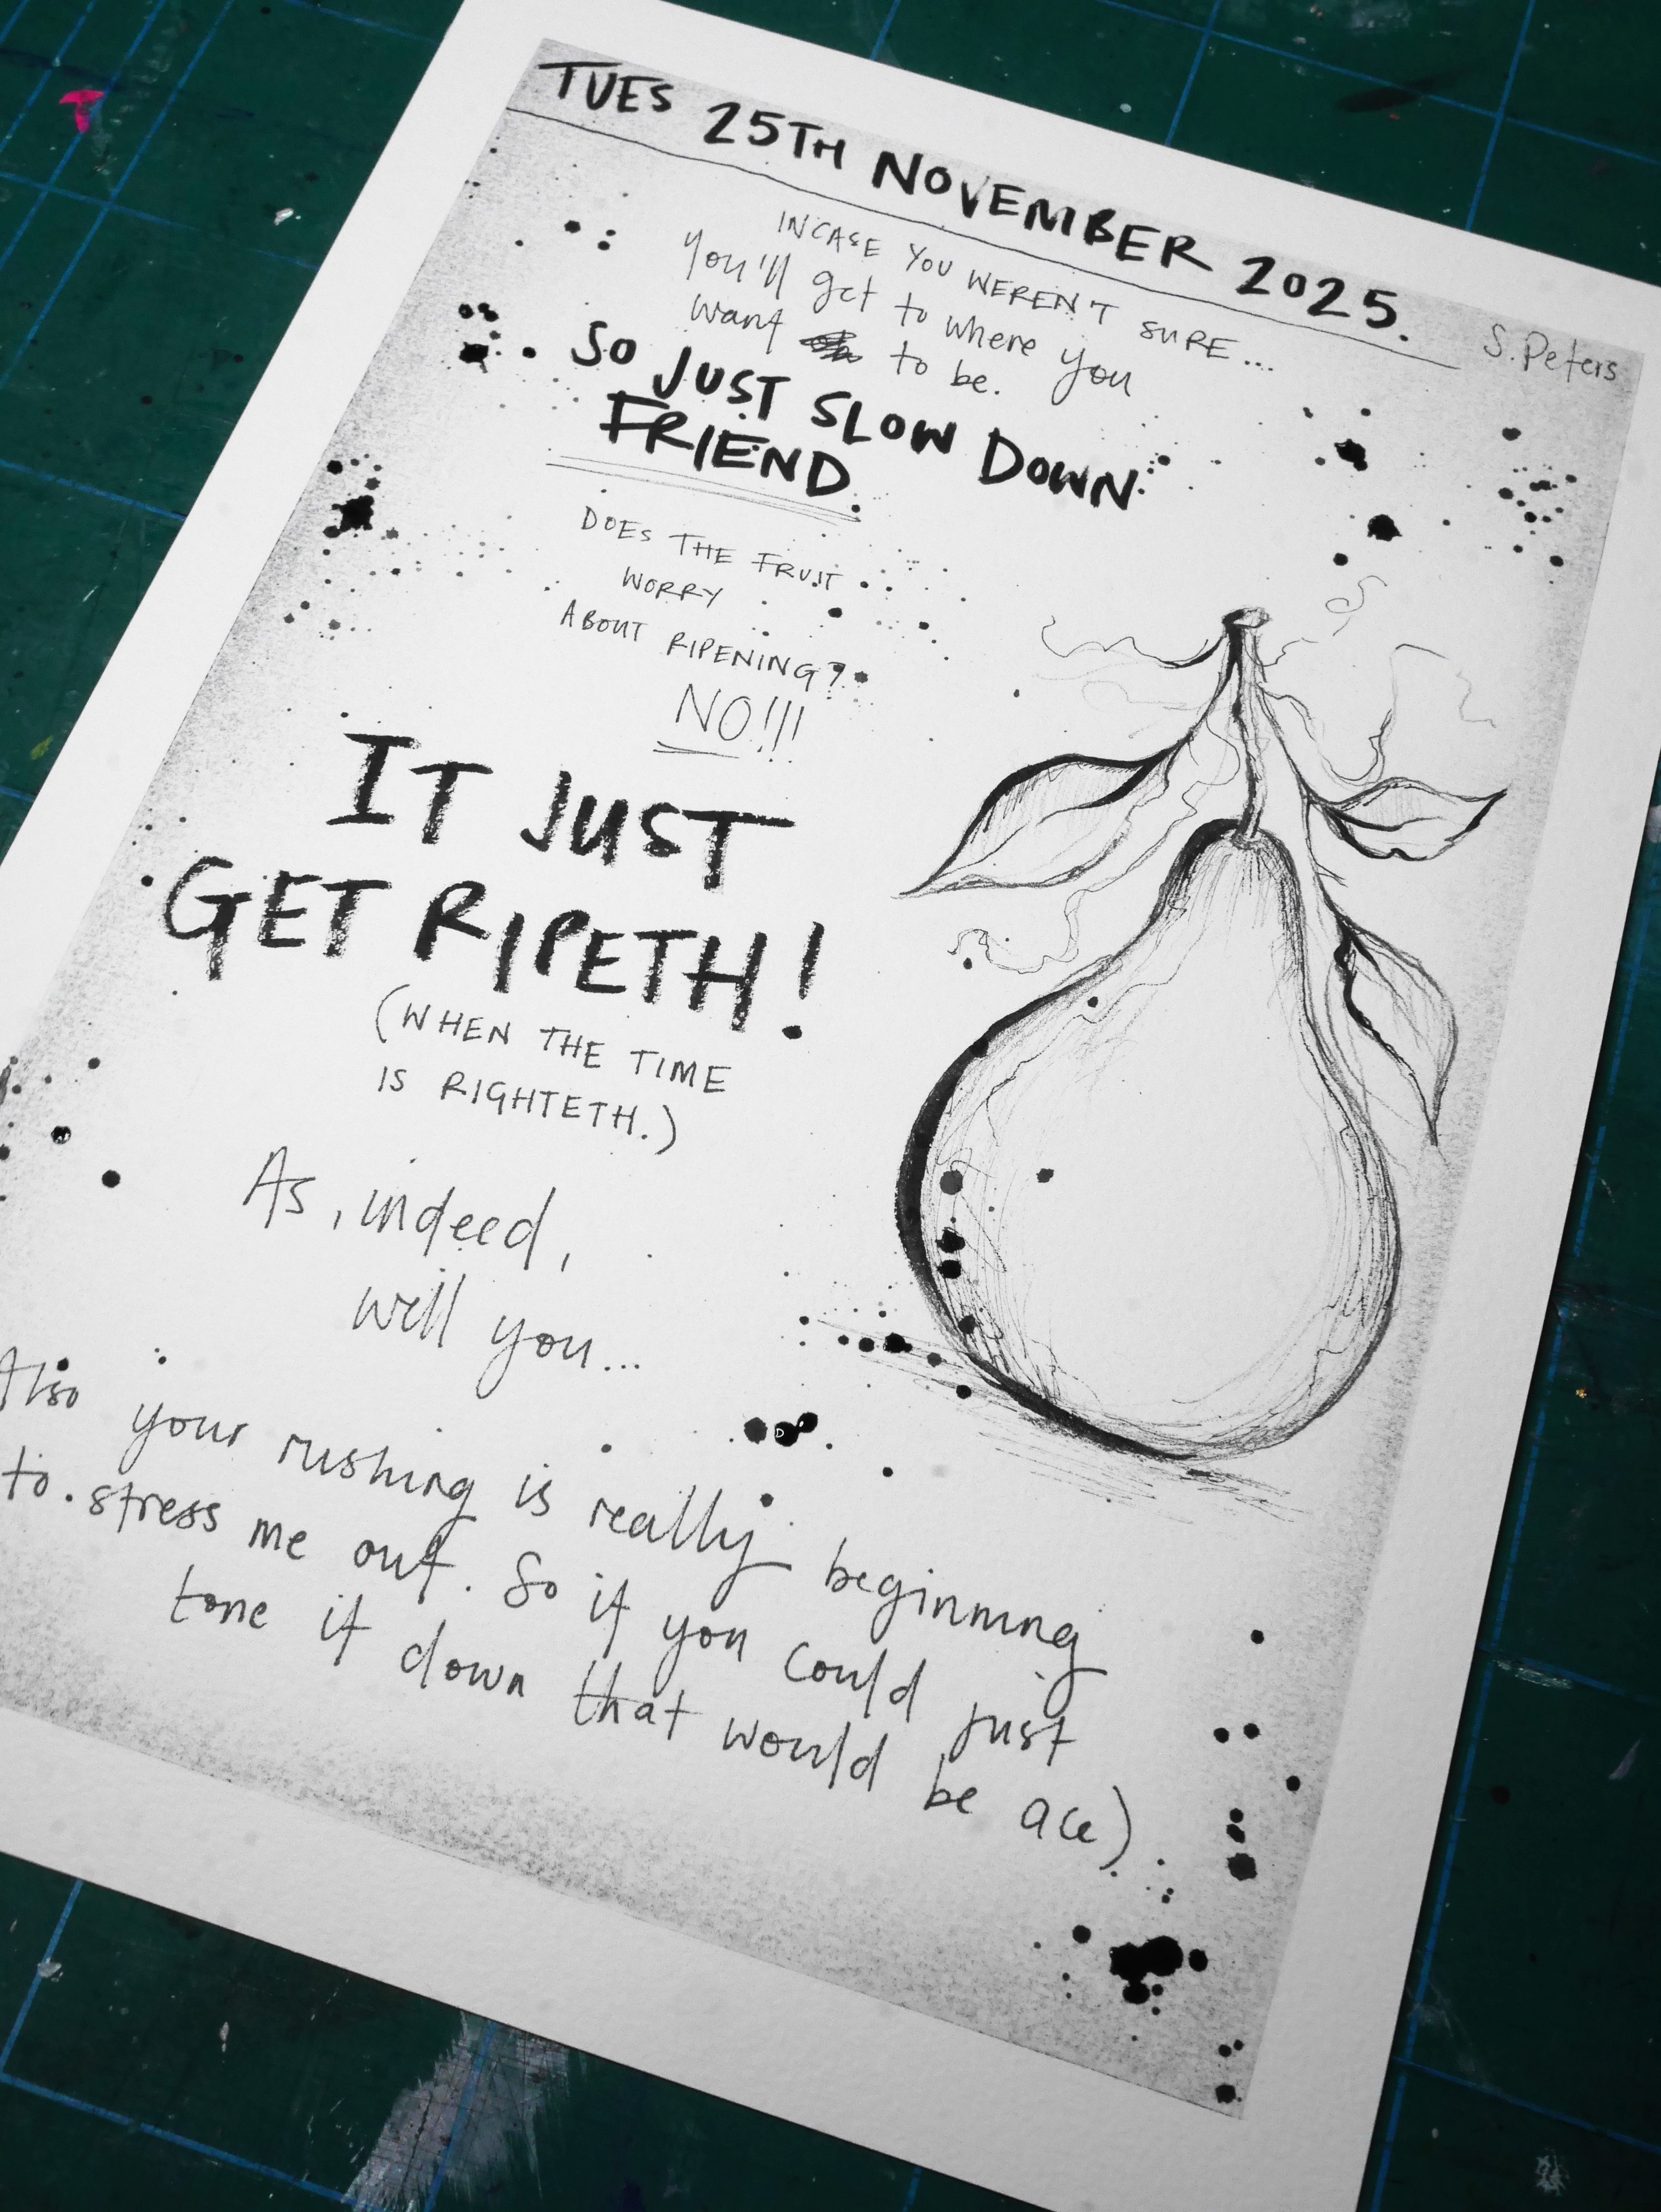 TUES 25TH NOVEMBER 2025.
S. Peters
INCASE YOU WEREN'T SURE...
You'll get to where you
want to be.
SO JUST SLOW DOWN
FRIEND.
DOES THE FRUIT
WORRY
ABOUT RIPENING?
NO!!!
IT JUST
GET RIPETH!
(WHEN THE TIME
IS RIGHTETH.)
As, indeed,
will you...
Also your rushing is really beginning
to stress me out. So if you could just
tone it down that would be ace)